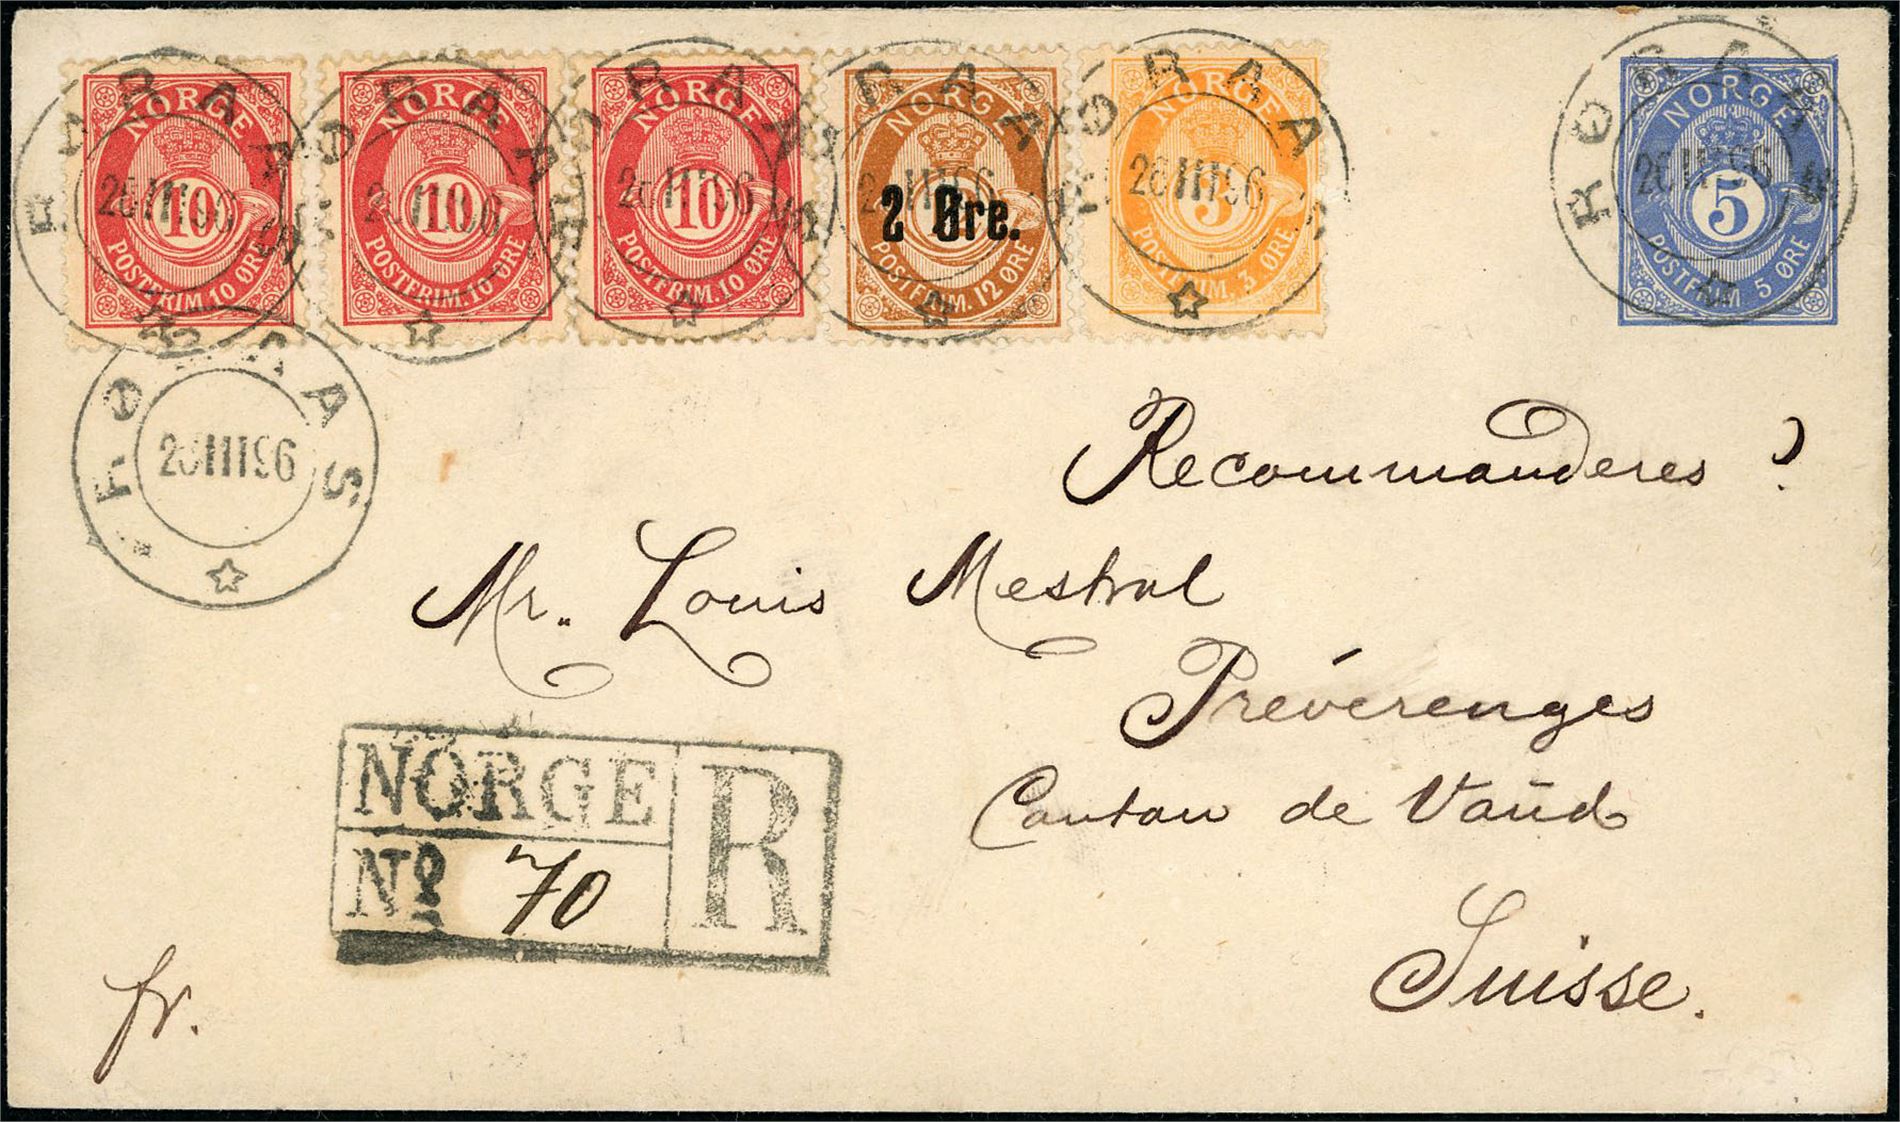 NORGE
10
POSTFRIM. 10 ØRE
NORGE
10
POSTFRIM. 10 ØRE
NORGE
10
POSTFRIM. 10 ØRE
NORGE
2 Øre.
POSTFRIM. 12 ØRE
NORGE
3
POSTFRIM. 3 ØRE
NORGE
5
POSTFRIM 5 ØRE
RØRAAS
26 III 96
Recommanderes
Mr. Louis Mestral
Préverenges
Canton de Vaŭd
Suisse.
NORGE
R
No 70
fr.